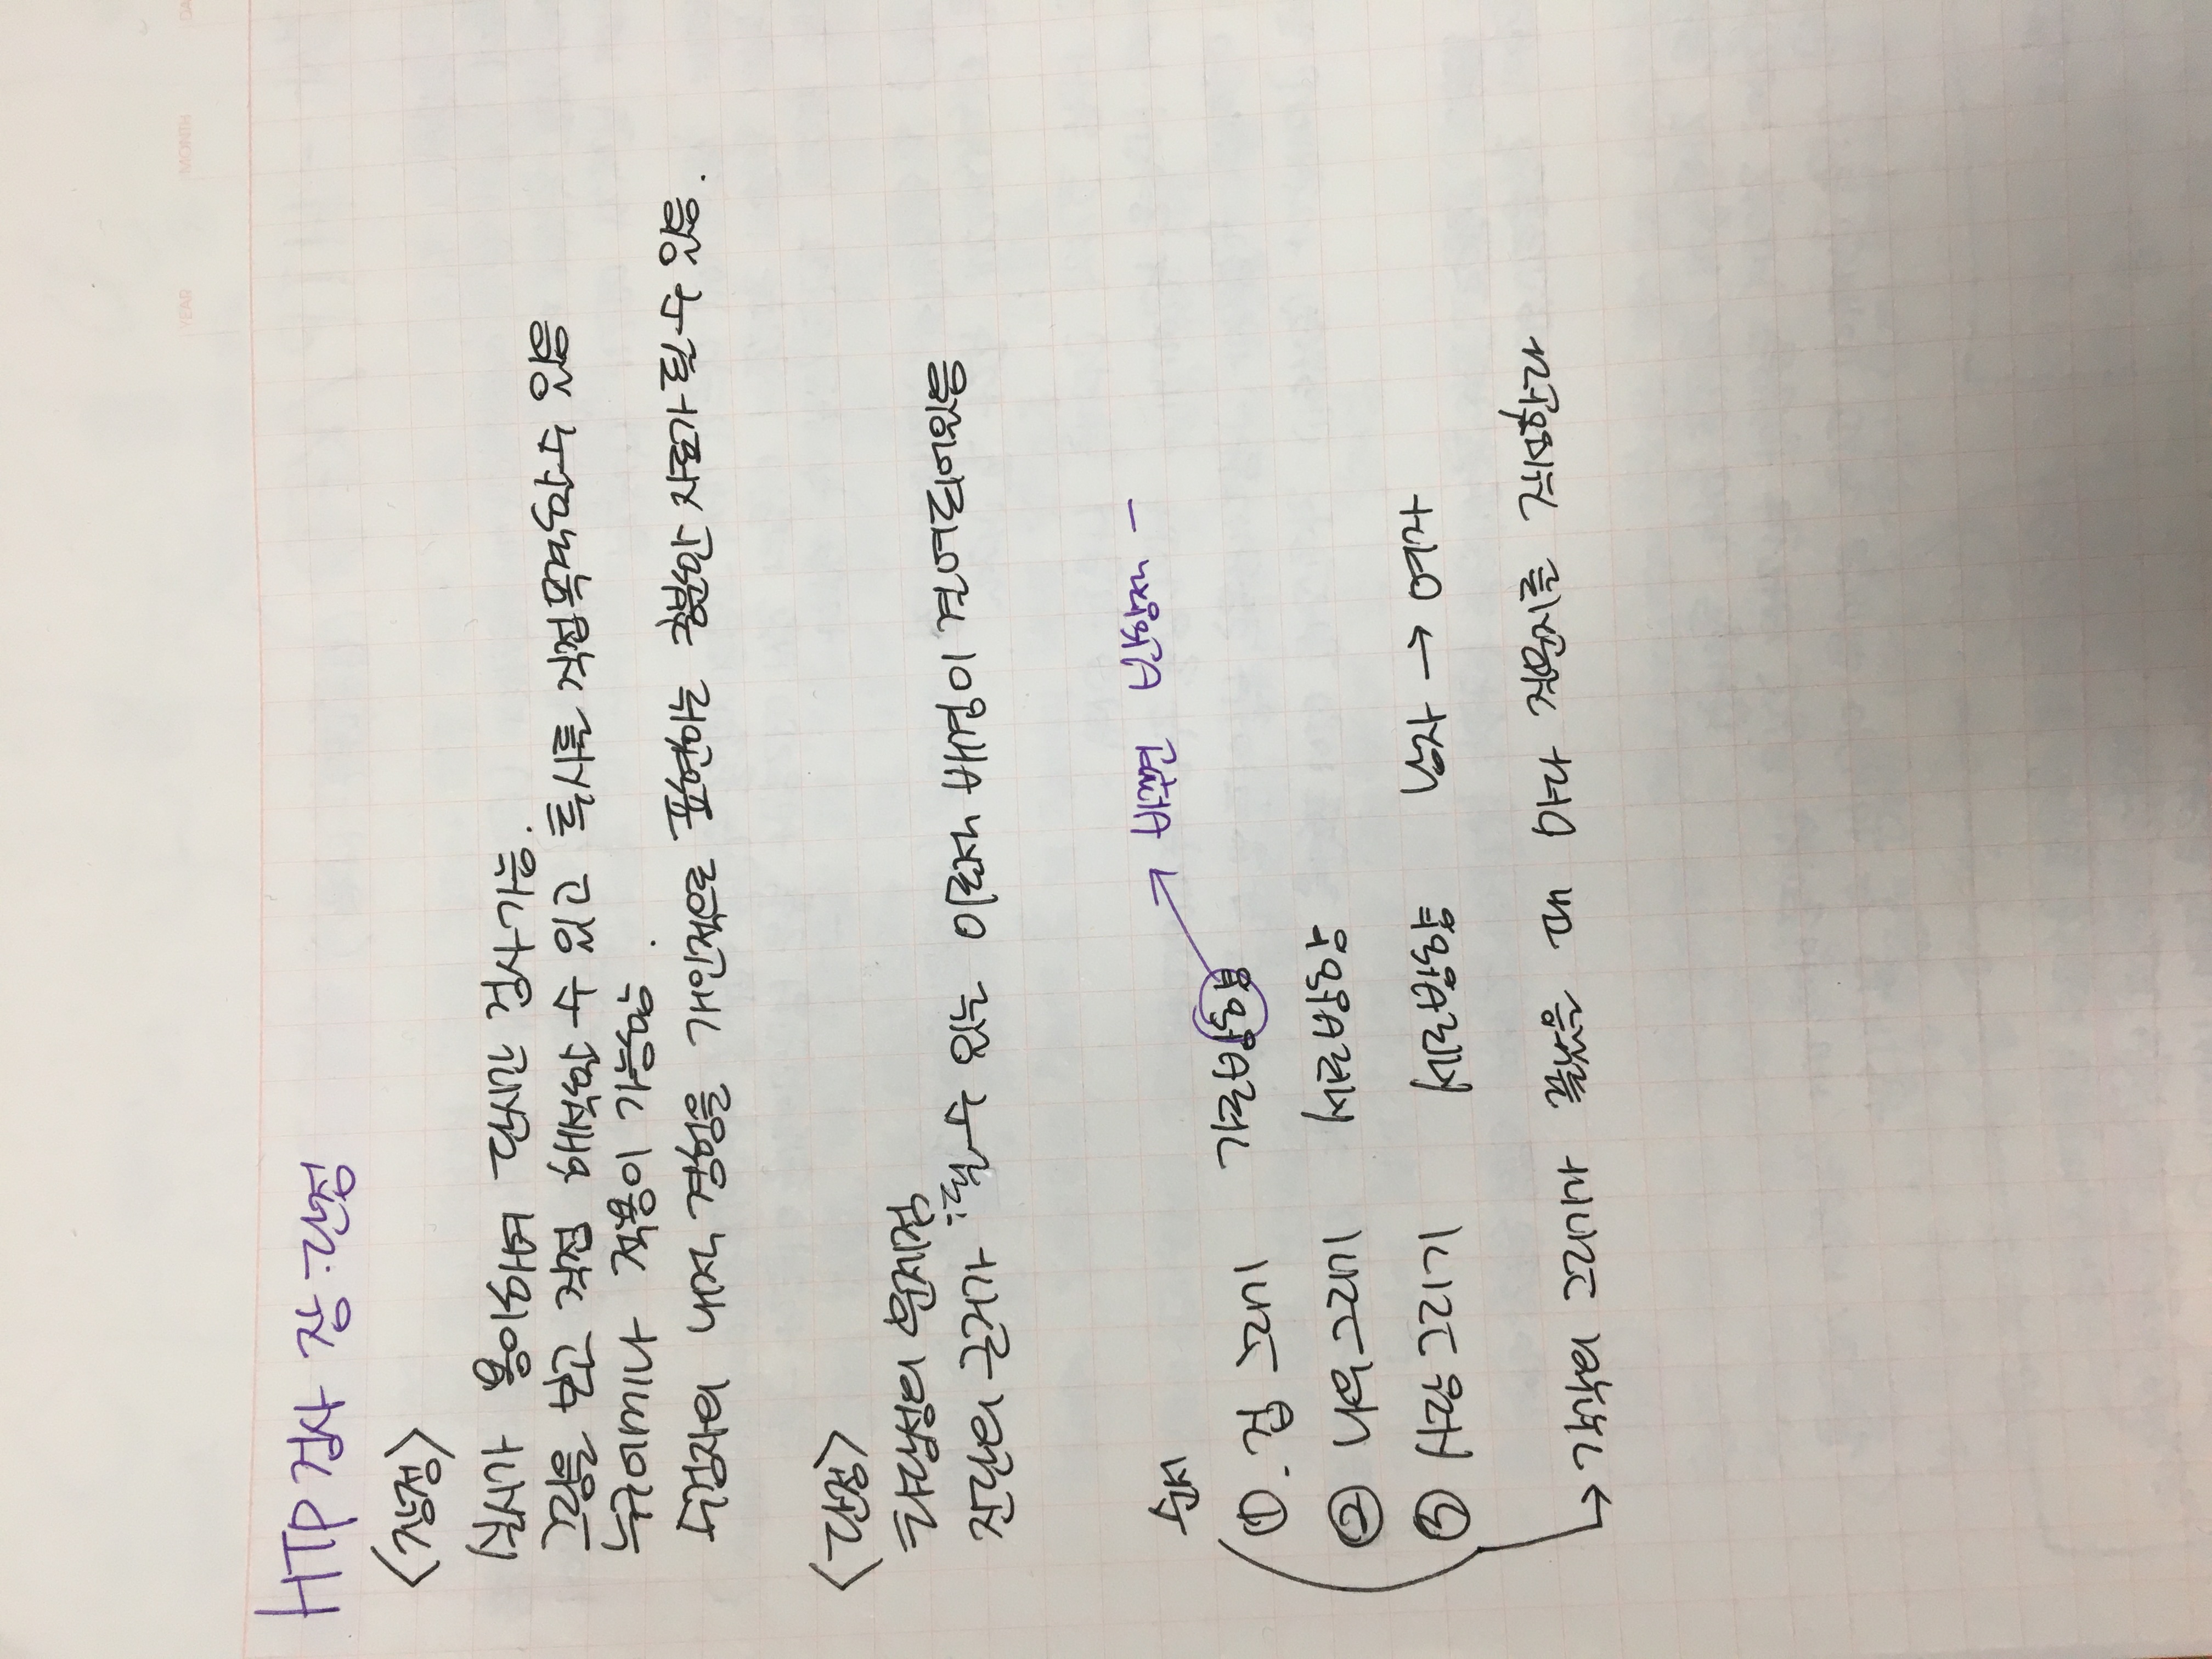 YEAR MONTH DA
HTP 검사 장·단점
<장점>
실시가 용이하며 단시간 검사 가능.
그림을 보고 직접 해석할 수 있고 투사를 직접목격할 수 있음
누구에게나 적용이 가능함.
수검자의 내적 경험을 개인적으로 표현하는 충분한 자료가 될 수 있음.
<단점>
타당성의 문제점
진단의 근거가 될 수 있는 이론적 배경이 결여되어있음
순서
바꾸면 반항적 -
①. 집 그리기 가로방향
② 나무그리기 세로방향
③ 사람 그리기 세로방향 남자 → 여자
→ 각각의 그리기가 끝났을 때 마다 질문지를 작성한다